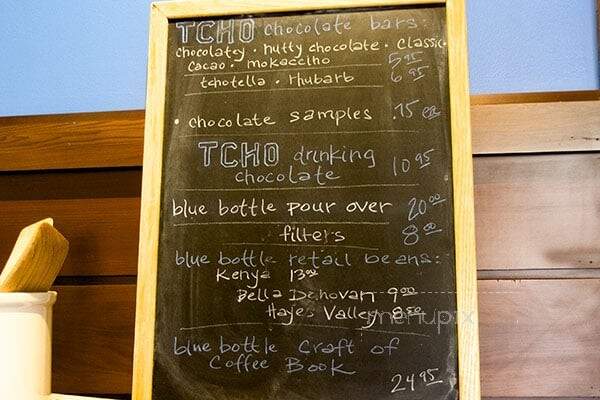 TCHO chocolate bars:
chocolatey · nutty chocolate · classic
cacao · mokaccino 5 95
tchotella · rhubarb 6 95
• chocolate samples .75 ea
TCHO drinking
chocolate 10 95
blue bottle pour over 20 00
filters 8 00
blue bottle retail beans:
Kenya 13 00
Bella Donovan 9 00
Hayes Valley 8 50
menupix
blue bottle craft of
Coffee Book
24 95